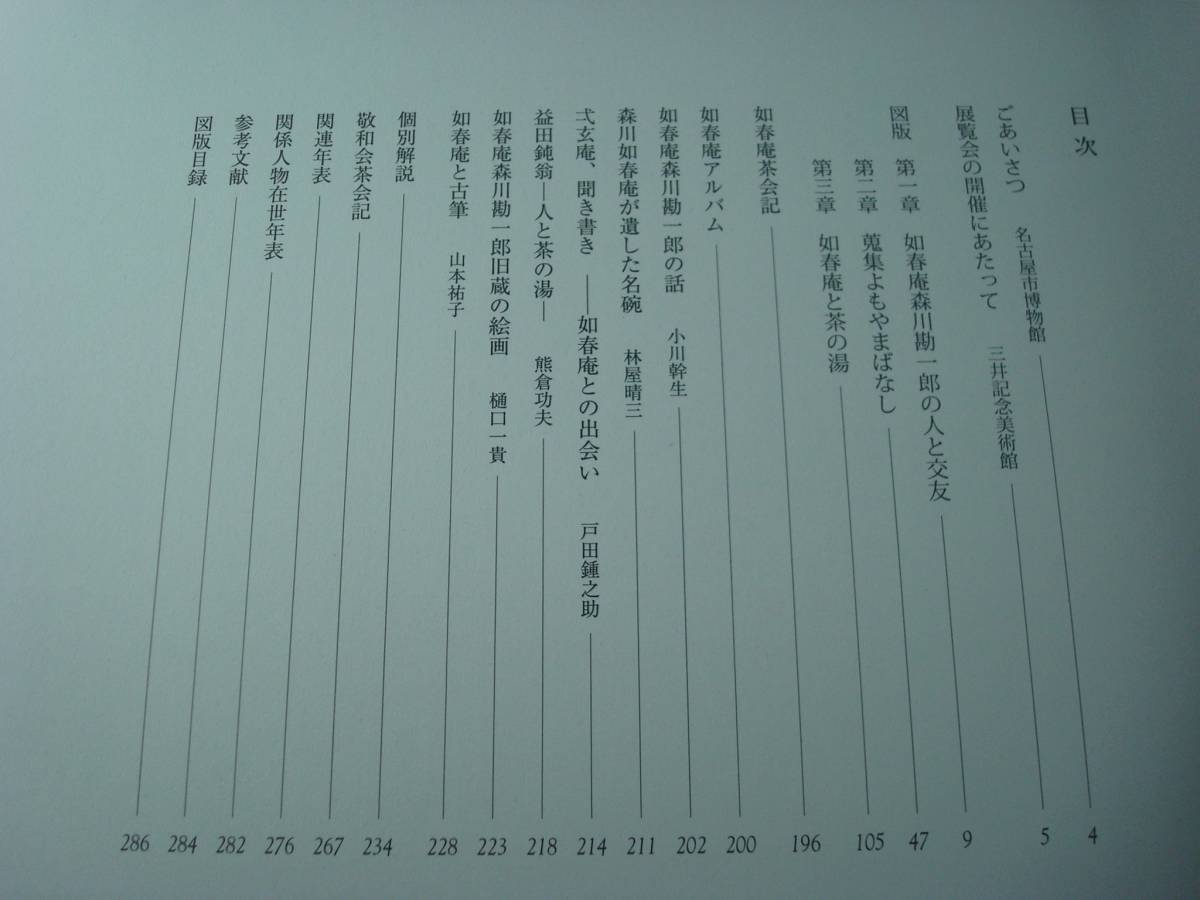 目次
ごあいさつ 名古屋市博物館 4
展覧会の開催にあたって 三井記念美術館 5
図版 第一章 如春庵森川勘一郎の人と交友 9
第二章 蒐集よもやまばなし 47
第三章 如春庵と茶の湯 105
如春庵茶会記 196
如春庵アルバム 200
如春庵森川勘一郎の話 小川幹生 202
森川如春庵が遺した名碗 林屋晴三 211
弌玄庵、聞き書き ――如春庵との出会い 戸田鍾之助 214
益田鈍翁―人と茶の湯― 熊倉功夫 218
如春庵森川勘一郎旧蔵の絵画 樋口一貴 223
如春庵と古筆 山本祐子 228
個別解説 234
敬和会茶会記 267
関連年表 276
関係人物在世年表 282
参考文献 284
図版目録 286